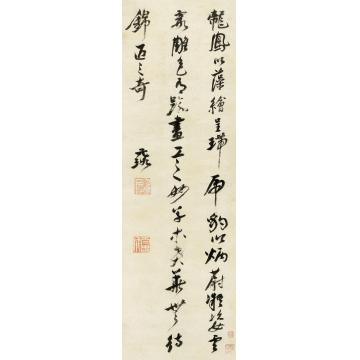 龍鳳以藻繪呈瑞虎豹以炳蔚凝姿雲
霞雕色有踰畫工之妙草木賁華無待
錦匠之奇